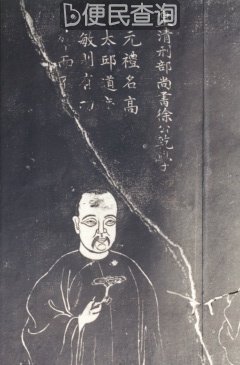 便民查询
清刑部尚書徐公乾學
元禮名高
太邱道
敏則有
而